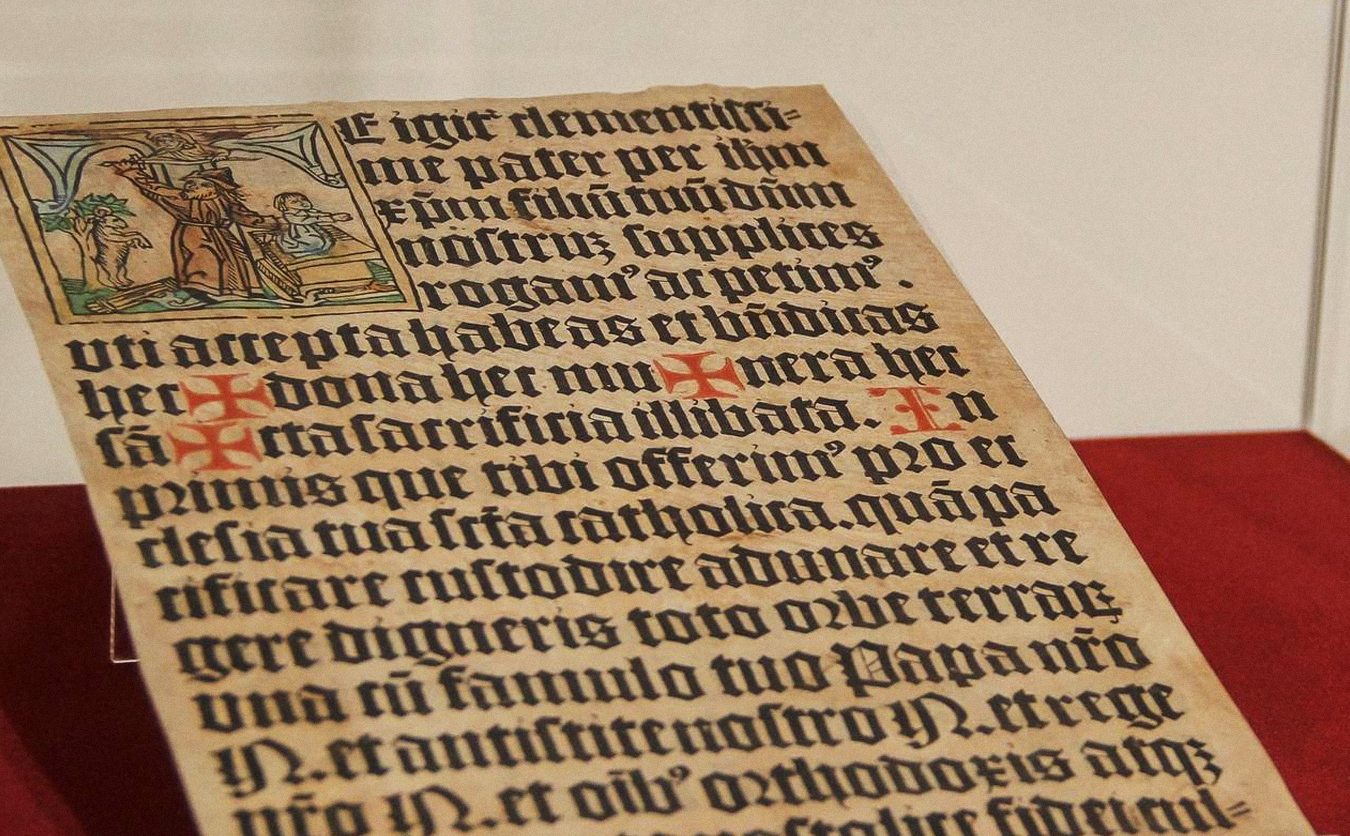 E igit̃ clementissi=
me pater per ih̃m
xp̄m filiū tuū dn̄m
nostruz supplices
rogamꝰ ac petimꝰ.
vti accepta habeas et bn̄dicas
hec ✠ dona hec mu ✠ nera hec
sā ✠ cta sacrificia illibata. In
primis que tibi offerimꝰ pro ec
clesia tua sct̄a catholica. quā pa
cificare custodire adunare et re
gere digneris toto orbe terraꝝ
vna cū famulo tuo Papa nr̄o
N. et antistite nostro N. et rege
nr̄o N. et oībꝰ orthodoxis atqꝫ
apostolice fidei cul=